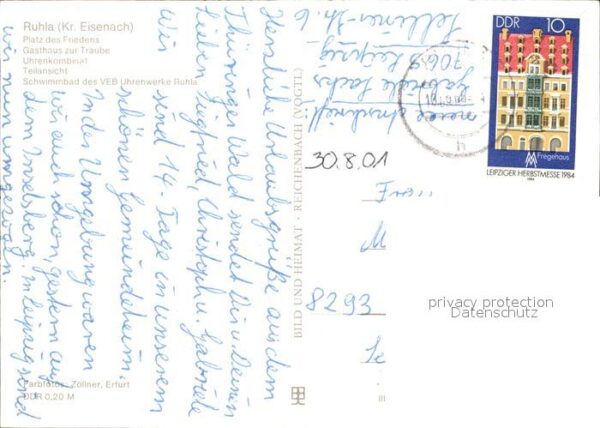 Ruhla (Kr. Eisenach)
Platz des Friedens
Gasthaus zur Traube
Uhrenkombinat
Teilansicht
Schwimmbad des VEB Uhrenwerke Ruhla
Herzliche Urlaubsgrüße aus dem
Thüringer Wald sendet Dir u. Deinen
Lieben Siegfried, Christoph u. Gabriele
Wir sind 14 Tage in unserem
schönen Gemeindeheim.
In der Umgebung waren
wir auch schon, gestern auf
dem Inselsberg. In Leipzig sind
wir nun umgezogen.
neue Anschrift:
Gabriele Sachs
7069 Leipzig
Selliner Str. 6
Farbfotos: Zöllner, Erfurt
DDR 0,20 M
BILD UND HEIMAT · REICHENBACH (VOGTL)
III
30.8.01
DDR 10
Fregehaus
MM
LEIPZIGER HERBSTMESSE 1984
1984
Frau
M
8293
privacy protection
Datenschutz